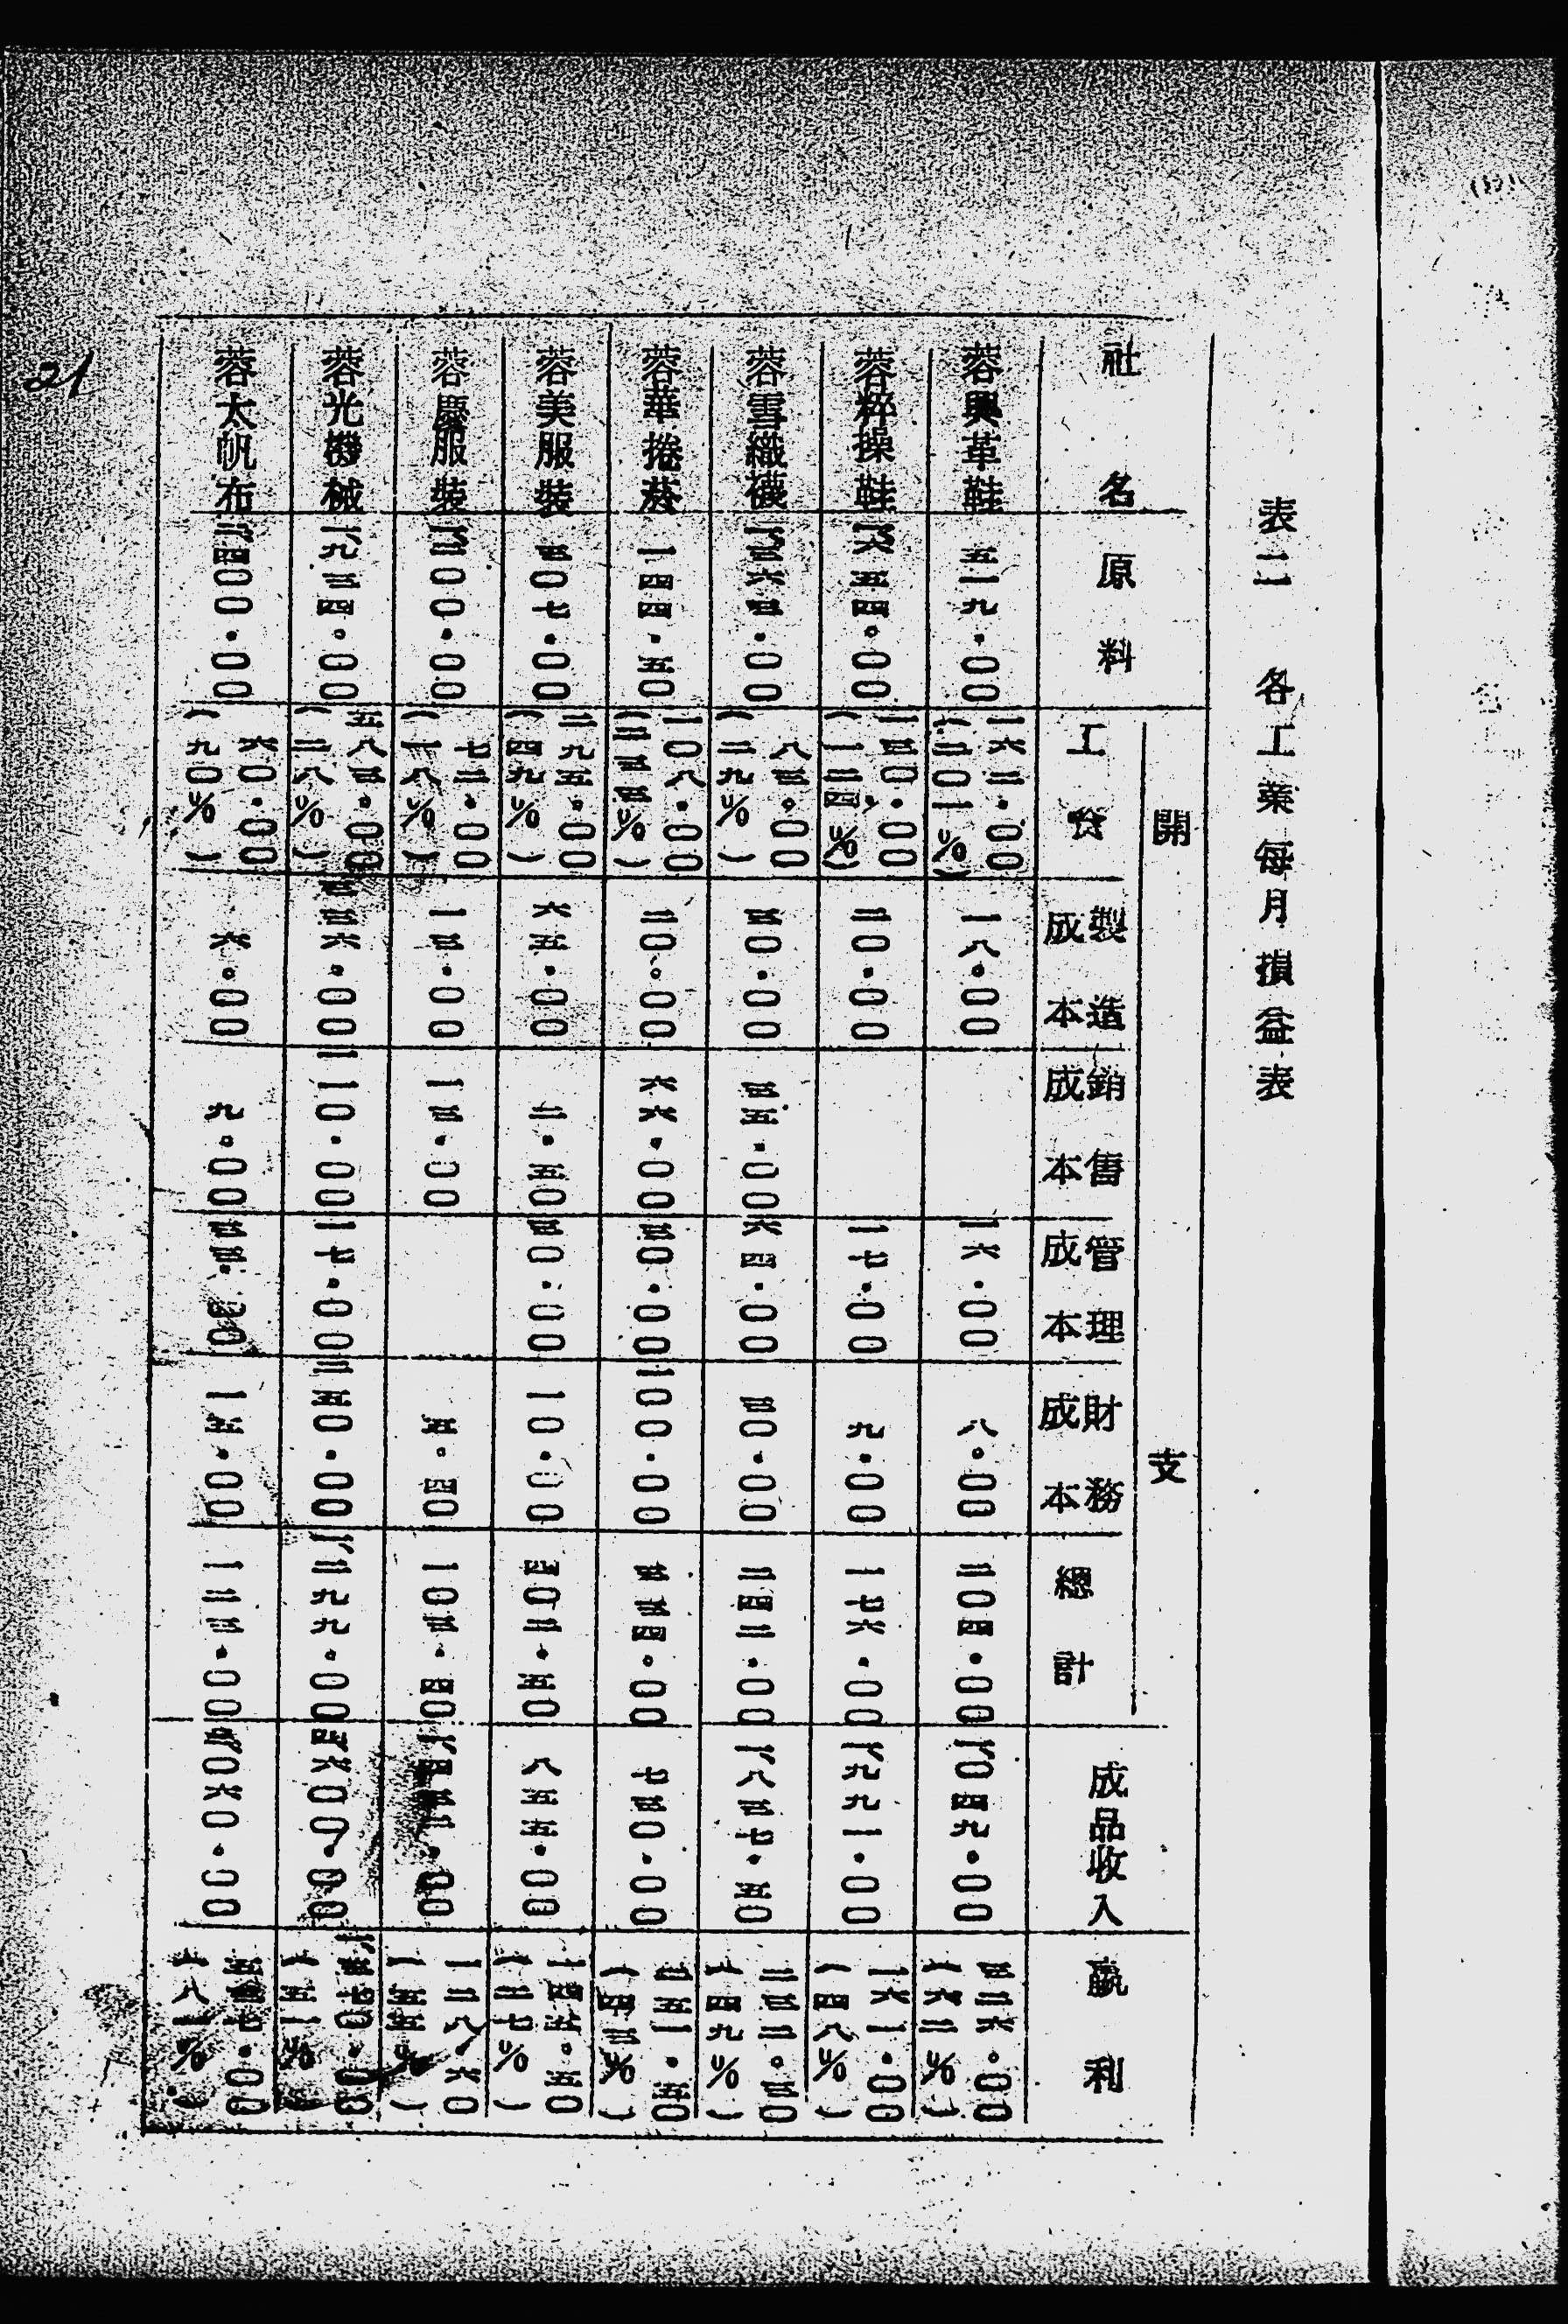 表二　各工業每月損益表
開支
社名　原料　工資　製造成本　銷售成本　管理成本　財務成本　總計　成品收入　贏利
蓉興革鞋　五一九．〇〇　一六二．〇〇（三〇一%）　一八．〇〇　一六．〇〇　八．〇〇　二〇四．〇〇　一、〇四九．〇〇　三二六．〇〇（六二%）
蓉粹操鞋　一、六五四．〇〇　一三〇．〇〇（一二四%）　二〇．〇〇　一七．〇〇　九．〇〇　一七六．〇〇　一、九九一．〇〇　一六一．〇〇（四八%）
蓉雪織襪　一、三六三．〇〇　八三．〇〇（二九%）　三〇．〇〇　三五．〇〇　六四．〇〇　三〇．〇〇　二四二．〇〇　一、八三七．五〇　二三二．三〇（四九%）
蓉華捲菸　一四四．五〇　一〇八．〇〇（二三三%）　二〇．〇〇　六六．〇〇　三〇．〇〇　一〇〇．〇〇　三五四．〇〇　七五〇．〇〇　二五一．五〇（四三%）
蓉美服裝　三〇七．〇〇　二九五．〇〇（四九%）　六五．〇〇　二．五〇　三〇．〇〇　一〇．〇〇　四〇二．五〇　八五五．〇〇　一四五．五〇（二七%）
蓉慶服裝　一、二〇〇．〇〇　七二．〇〇（一八%）　一三．〇〇　一三．〇〇　五．四〇　一〇三．四〇　一、四三二．〇〇　一二八．六〇（五五%）
蓉光機械　一、九三四．〇〇　五八三．〇〇（二八%）　三三六．〇〇　一一〇．〇〇　一七．〇〇　二五〇．〇〇　一、二九九．〇〇　四、六〇〇．〇〇　一、三七〇．〇〇（五一%）
蓉太帆布　二、四〇〇．〇〇　六〇．〇〇（九〇%）　六．〇〇　九．〇〇　三三．〇〇　一五．〇〇　一二三．〇〇　三、〇六〇．〇〇　五三七．〇〇（八一%）
21